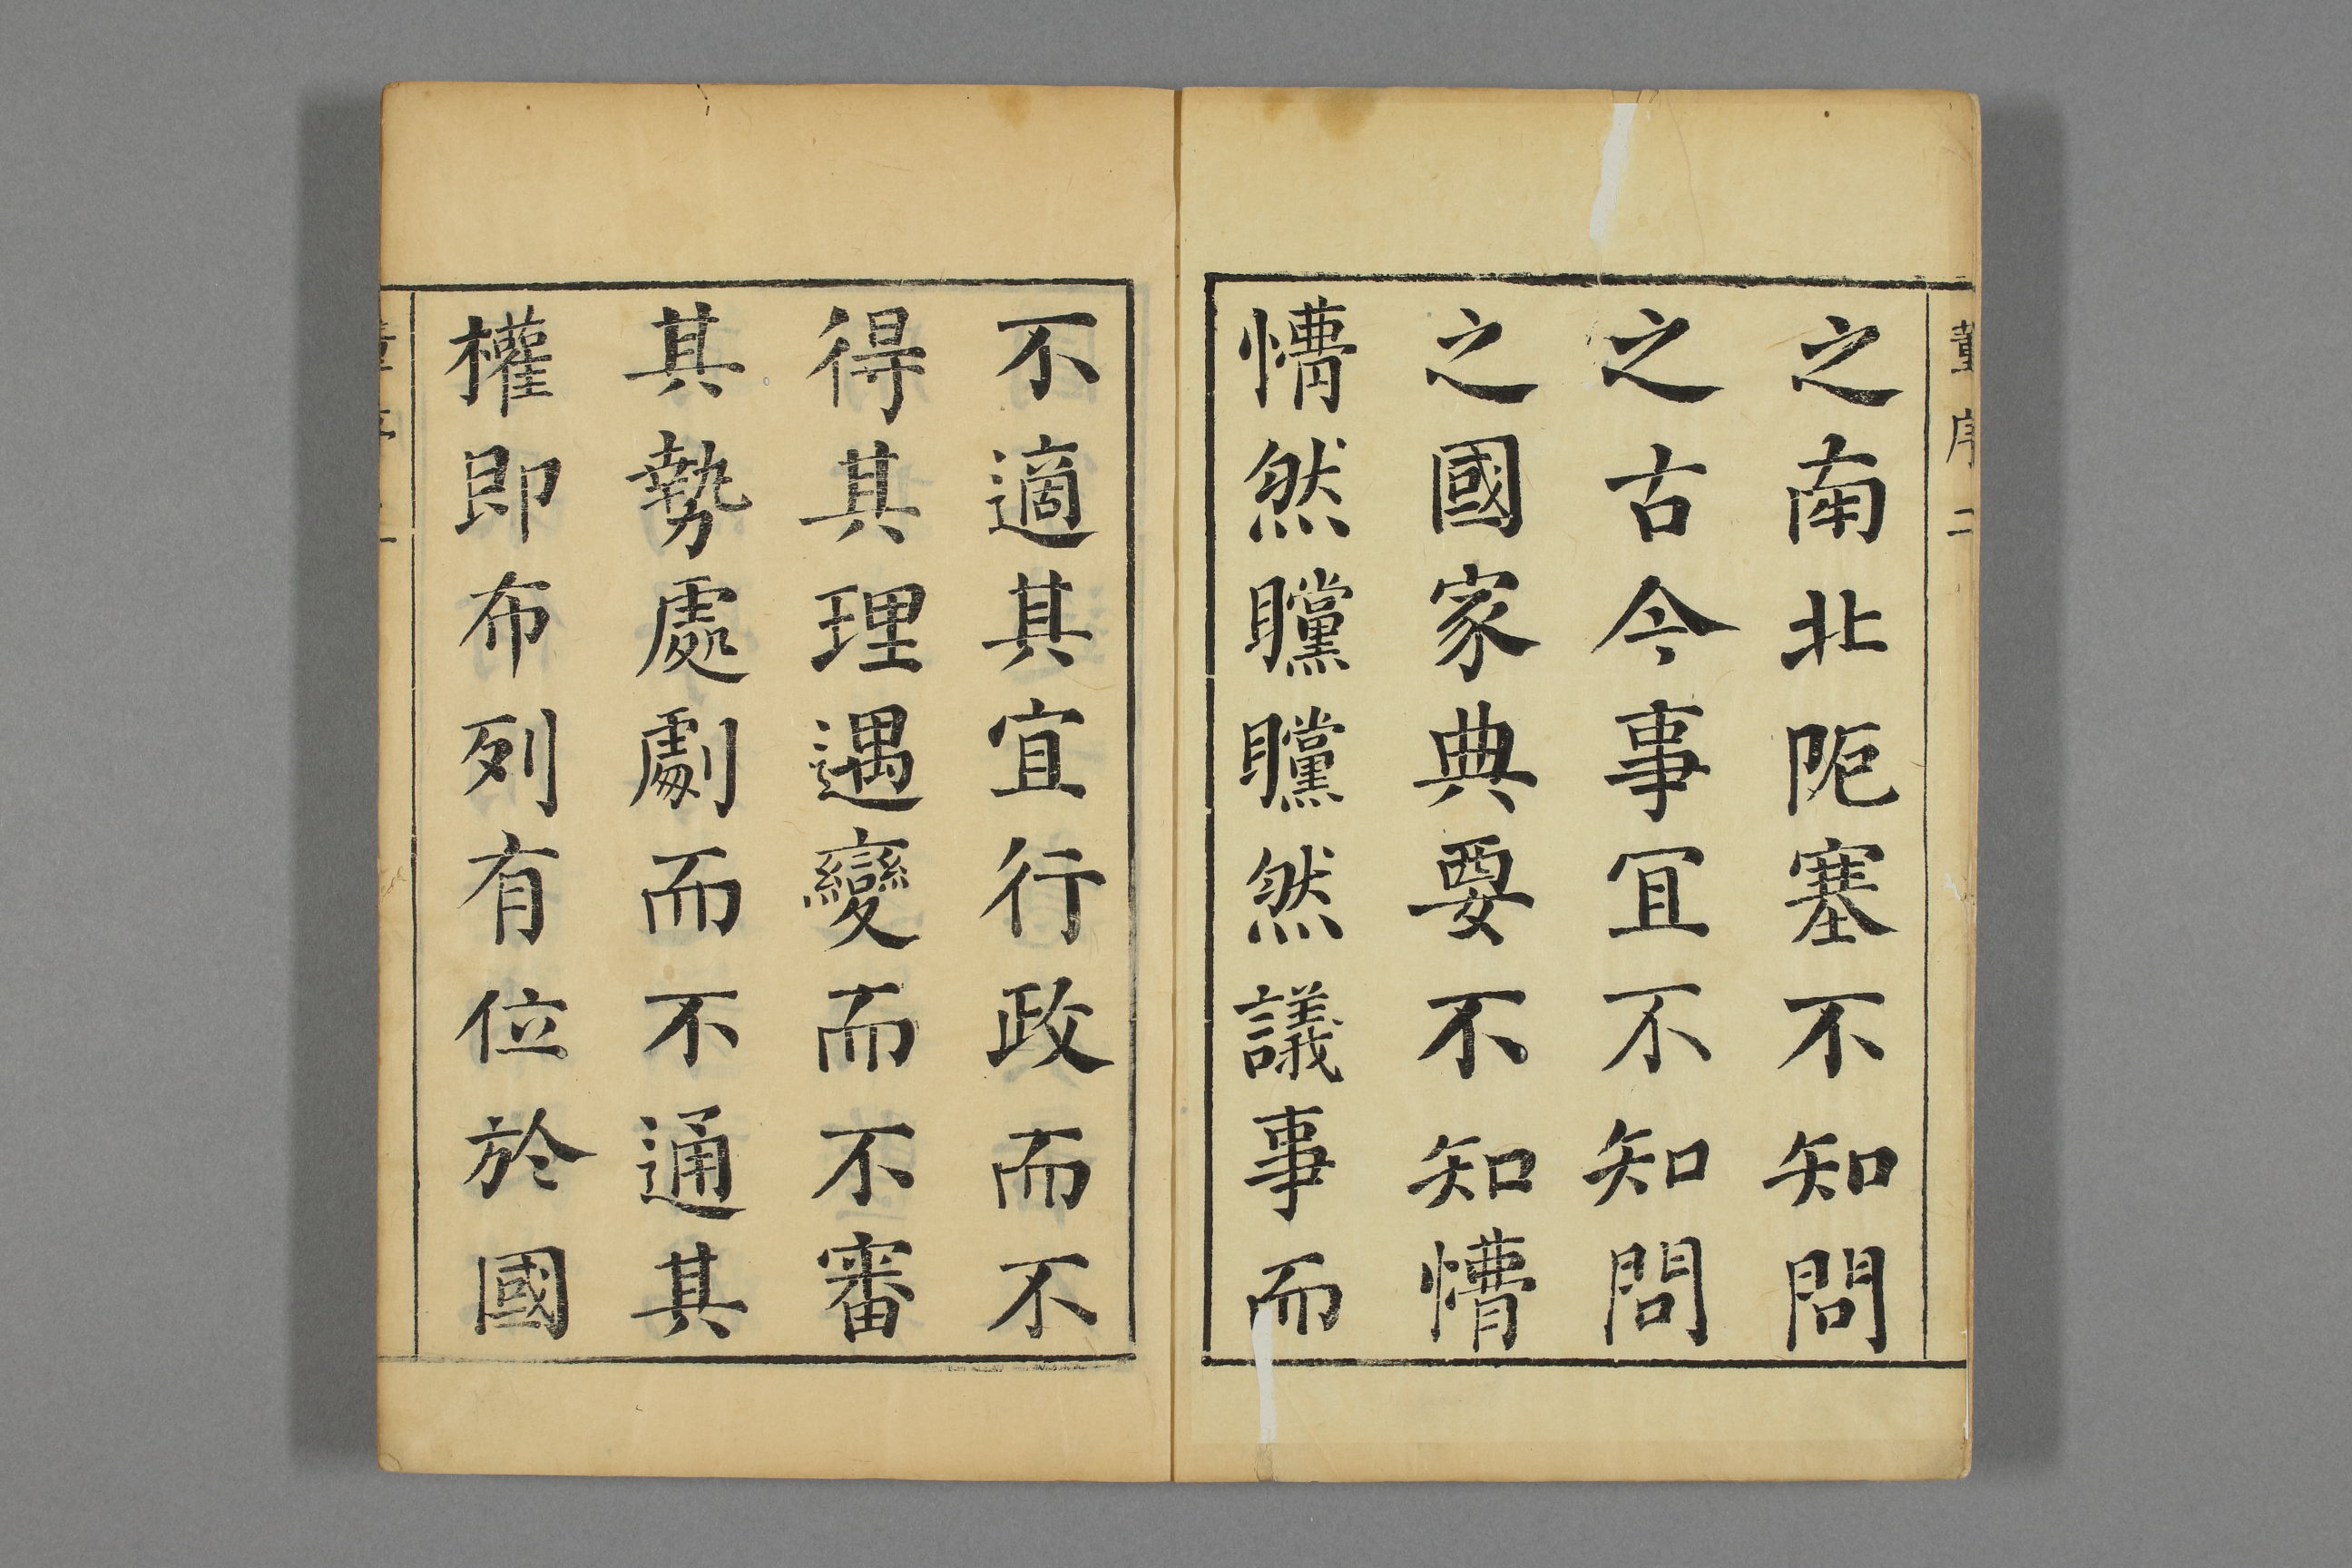 董序二
之南北阨塞不知問
之古今事冝不知問
之國家典要不知慒
慒然矘矘然議事而
不適其宜行政而不
得其理遇變而不審
其勢處劇而不通其
權即布列有位於國